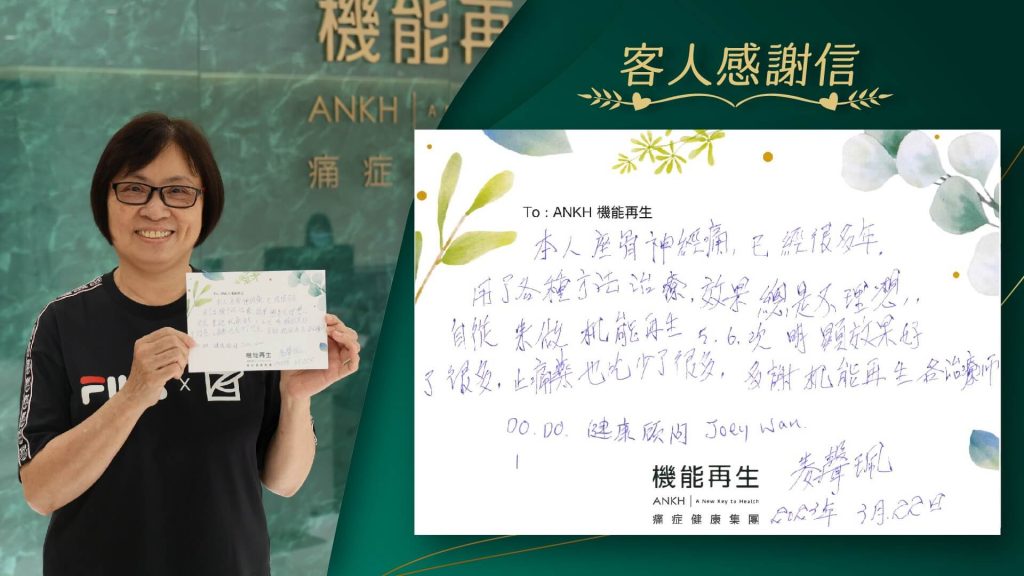 機能再
ANKH | A
痛 症
FILA
×
客人感謝信
To : ANKH 機能再生
本人座骨神經痛,已經很多年,
用了各種方法治療,效果總是不理想,,
自從來做机能再生5.6.次明顯效果好
了很多,止痛藥也吃少了很多,多謝机能再生各治療師
DO.DO. 健康顾问 Joey Wan.
機能再生
ANKH | A New Key to Health
痛症健康集團
麦聲珮
2023年 3月.22日